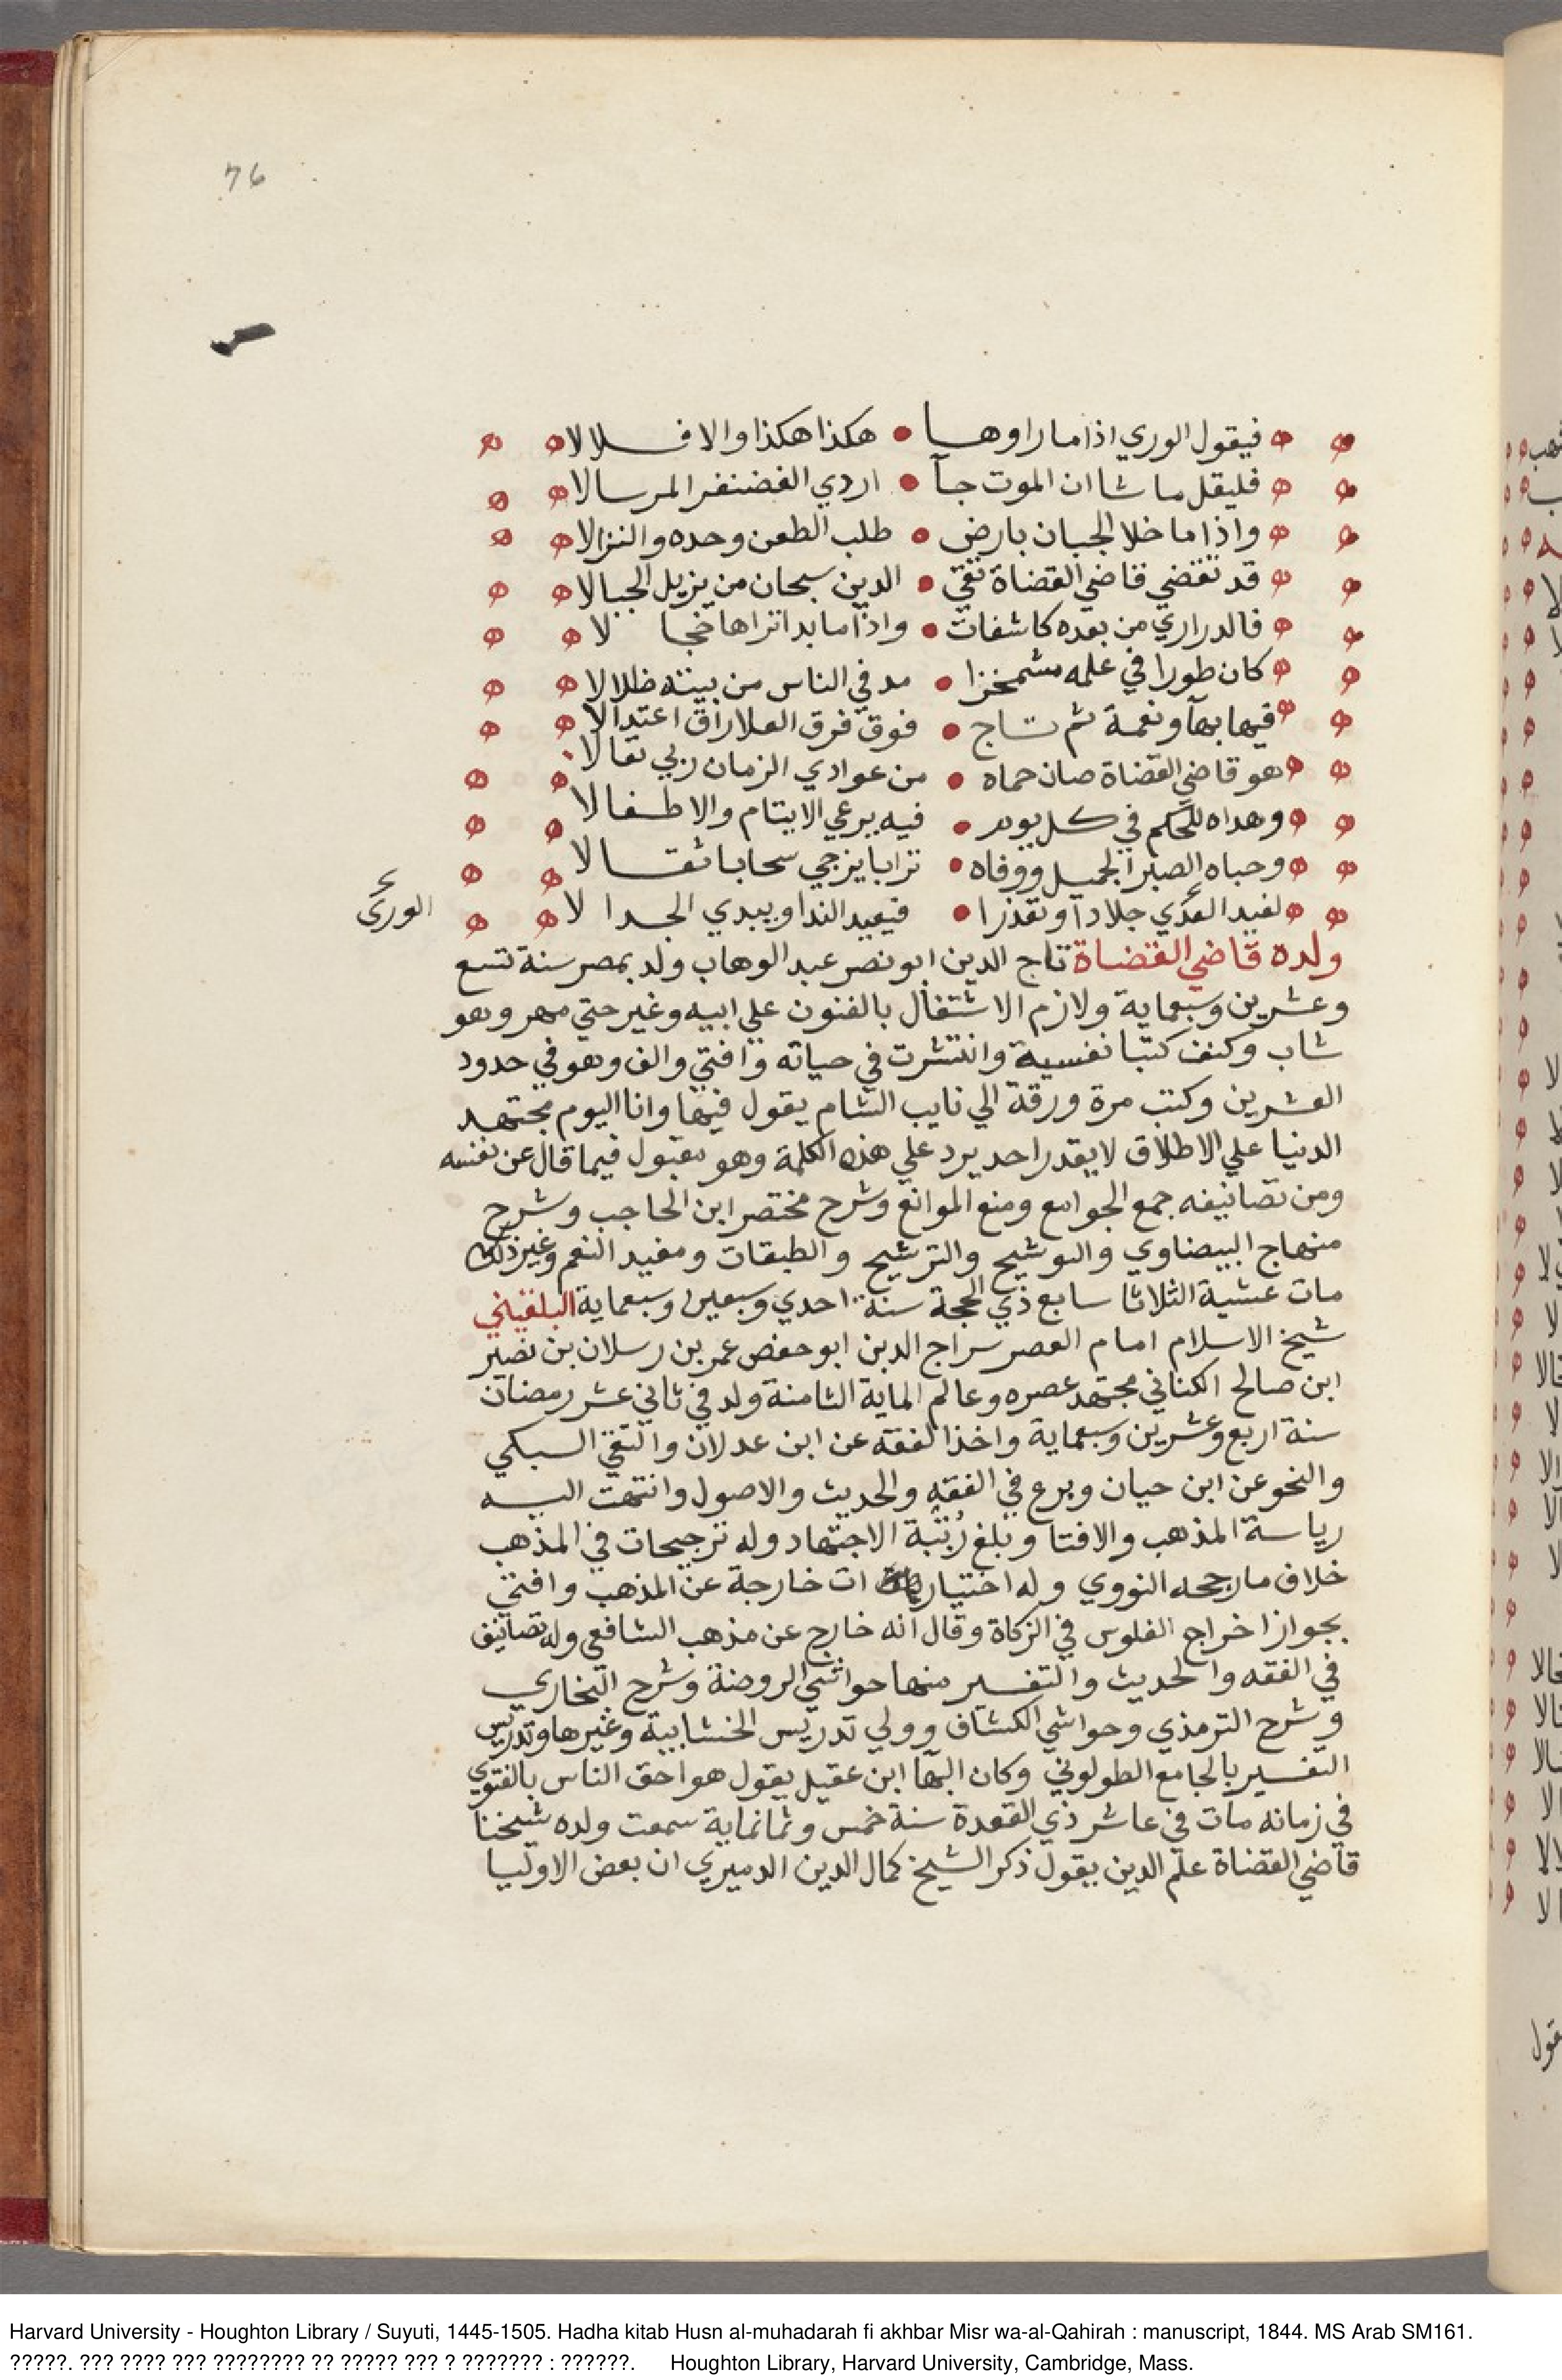 76
فيقول الوري اذا ما راوها • هكذا هكذا والا فلا لا
فليقل ما شا ان الموت جآ • اردي الغضنفر المرسالا
واذا ما خلا الجبان بارض • طلب الطعن وحده والنزالا
قد تقضي قاضي القضاة تقي • الدين سبحان من يزيل الجبالا
فالدراري من بعده كاشفات • واذا ما بدا تراها خجا لا
كان طورا في علمه مشمخزا • مد في الناس من بيته ظلالا
فيها بهآ ونعمة ثم تاج • فوق فرق العلا راق اعتدالا
هو قاضي القضاة صان حماه • من عوادي الزمان ربي تعالا
وهداه للحكم في كل يوم • فيه يرعي الايتام والاطفالا
وحباه الصبر الجميل ووفاه • ترابا يزجي سحابا ثقالا
لفيد العدي جلادا وتقذرا • فيعيد الندا ويبدي الجدا لا
الوري
ولده قاضي القضاة تاج الدين ابو نصر عبد الوهاب ولد بمصر سنة تسع
وعشرين وسبعماية ولازم الاشتغال بالفنون علي ابيه وغير حتي مهر وهو
شاب وكنف كتبا نفسية وانتشرت في حياته وافتي والف وهو في حدود
العشرين وكتب مرة ورقة الي نايب الشام يقول فيها وانا اليوم مجتهد
الدنيا علي الاطلاق لا يقدر احد يرد علي هذه الكلمة وهو مقبول فيما قال عن نفسه
ومن تصانيفه جمع الجوامع ومنع الموانع وشرح مختصر ابن الحاجب وشرح
منهاج البيضاوي والتوشيح والترشيح والطبقات ومفيد النعم وغير ذلك
مات عشية الثلاثا سابع ذي الحجة سنة احدي وسبعين وسبعماية البلقيني
شيخ الاسلام امام العصر سراج الدين ابو حفص عمر بن رسلان بن نصير
ابن صالح الكناني مجتهد عصره وعالم الماية الثامنة ولد في ثاني عشر رمضان
سنة اربع وعشرين وسبعماية واخذ الفقه عن ابن عدلان والتقي السبكي
والنحو عن ابن حيان وبرع في الفقه والحديث والاصول وانتهت اليه
رياسة المذهب والافتا وبلغ رُتبة الاجتهاد وله ترجيحات في المذهب
خلاف ما رجحه النووي وله اختيار ات خارجة عن المذهب وافتي
بجواز اخراج الفلوس في الزكاة وقال انه خارج عن مذهب الشافعي وله تصانيف
في الفقه والحديث والتفسير منها حواشي الروضة وشرح البخاري
وشرح الترمذي وحواشي الكشاف وولي تدريس الخشابية وغيرها وتدريس
التفسير بالجامع الطولوني وكان البها ابن عقيل يقول هو احق الناس بالفتوي
في زمانه مات في عاشر ذي القعدة سنة خمس وثمانماية سمعت ولده شيخنا
قاضي القضاة علم الدين يقول ذكر الشيخ كمال الدين الدميري ان بعض الاوليا
Harvard University - Houghton Library / Suyuti, 1445-1505. Hadha kitab Husn al-muhadarah fi akhbar Misr wa-al-Qahirah : manuscript, 1844. MS Arab SM161.
?????. ??? ???? ??? ???????? ?? ????? ??? ? ??????? : ??????. Houghton Library, Harvard University, Cambridge, Mass.